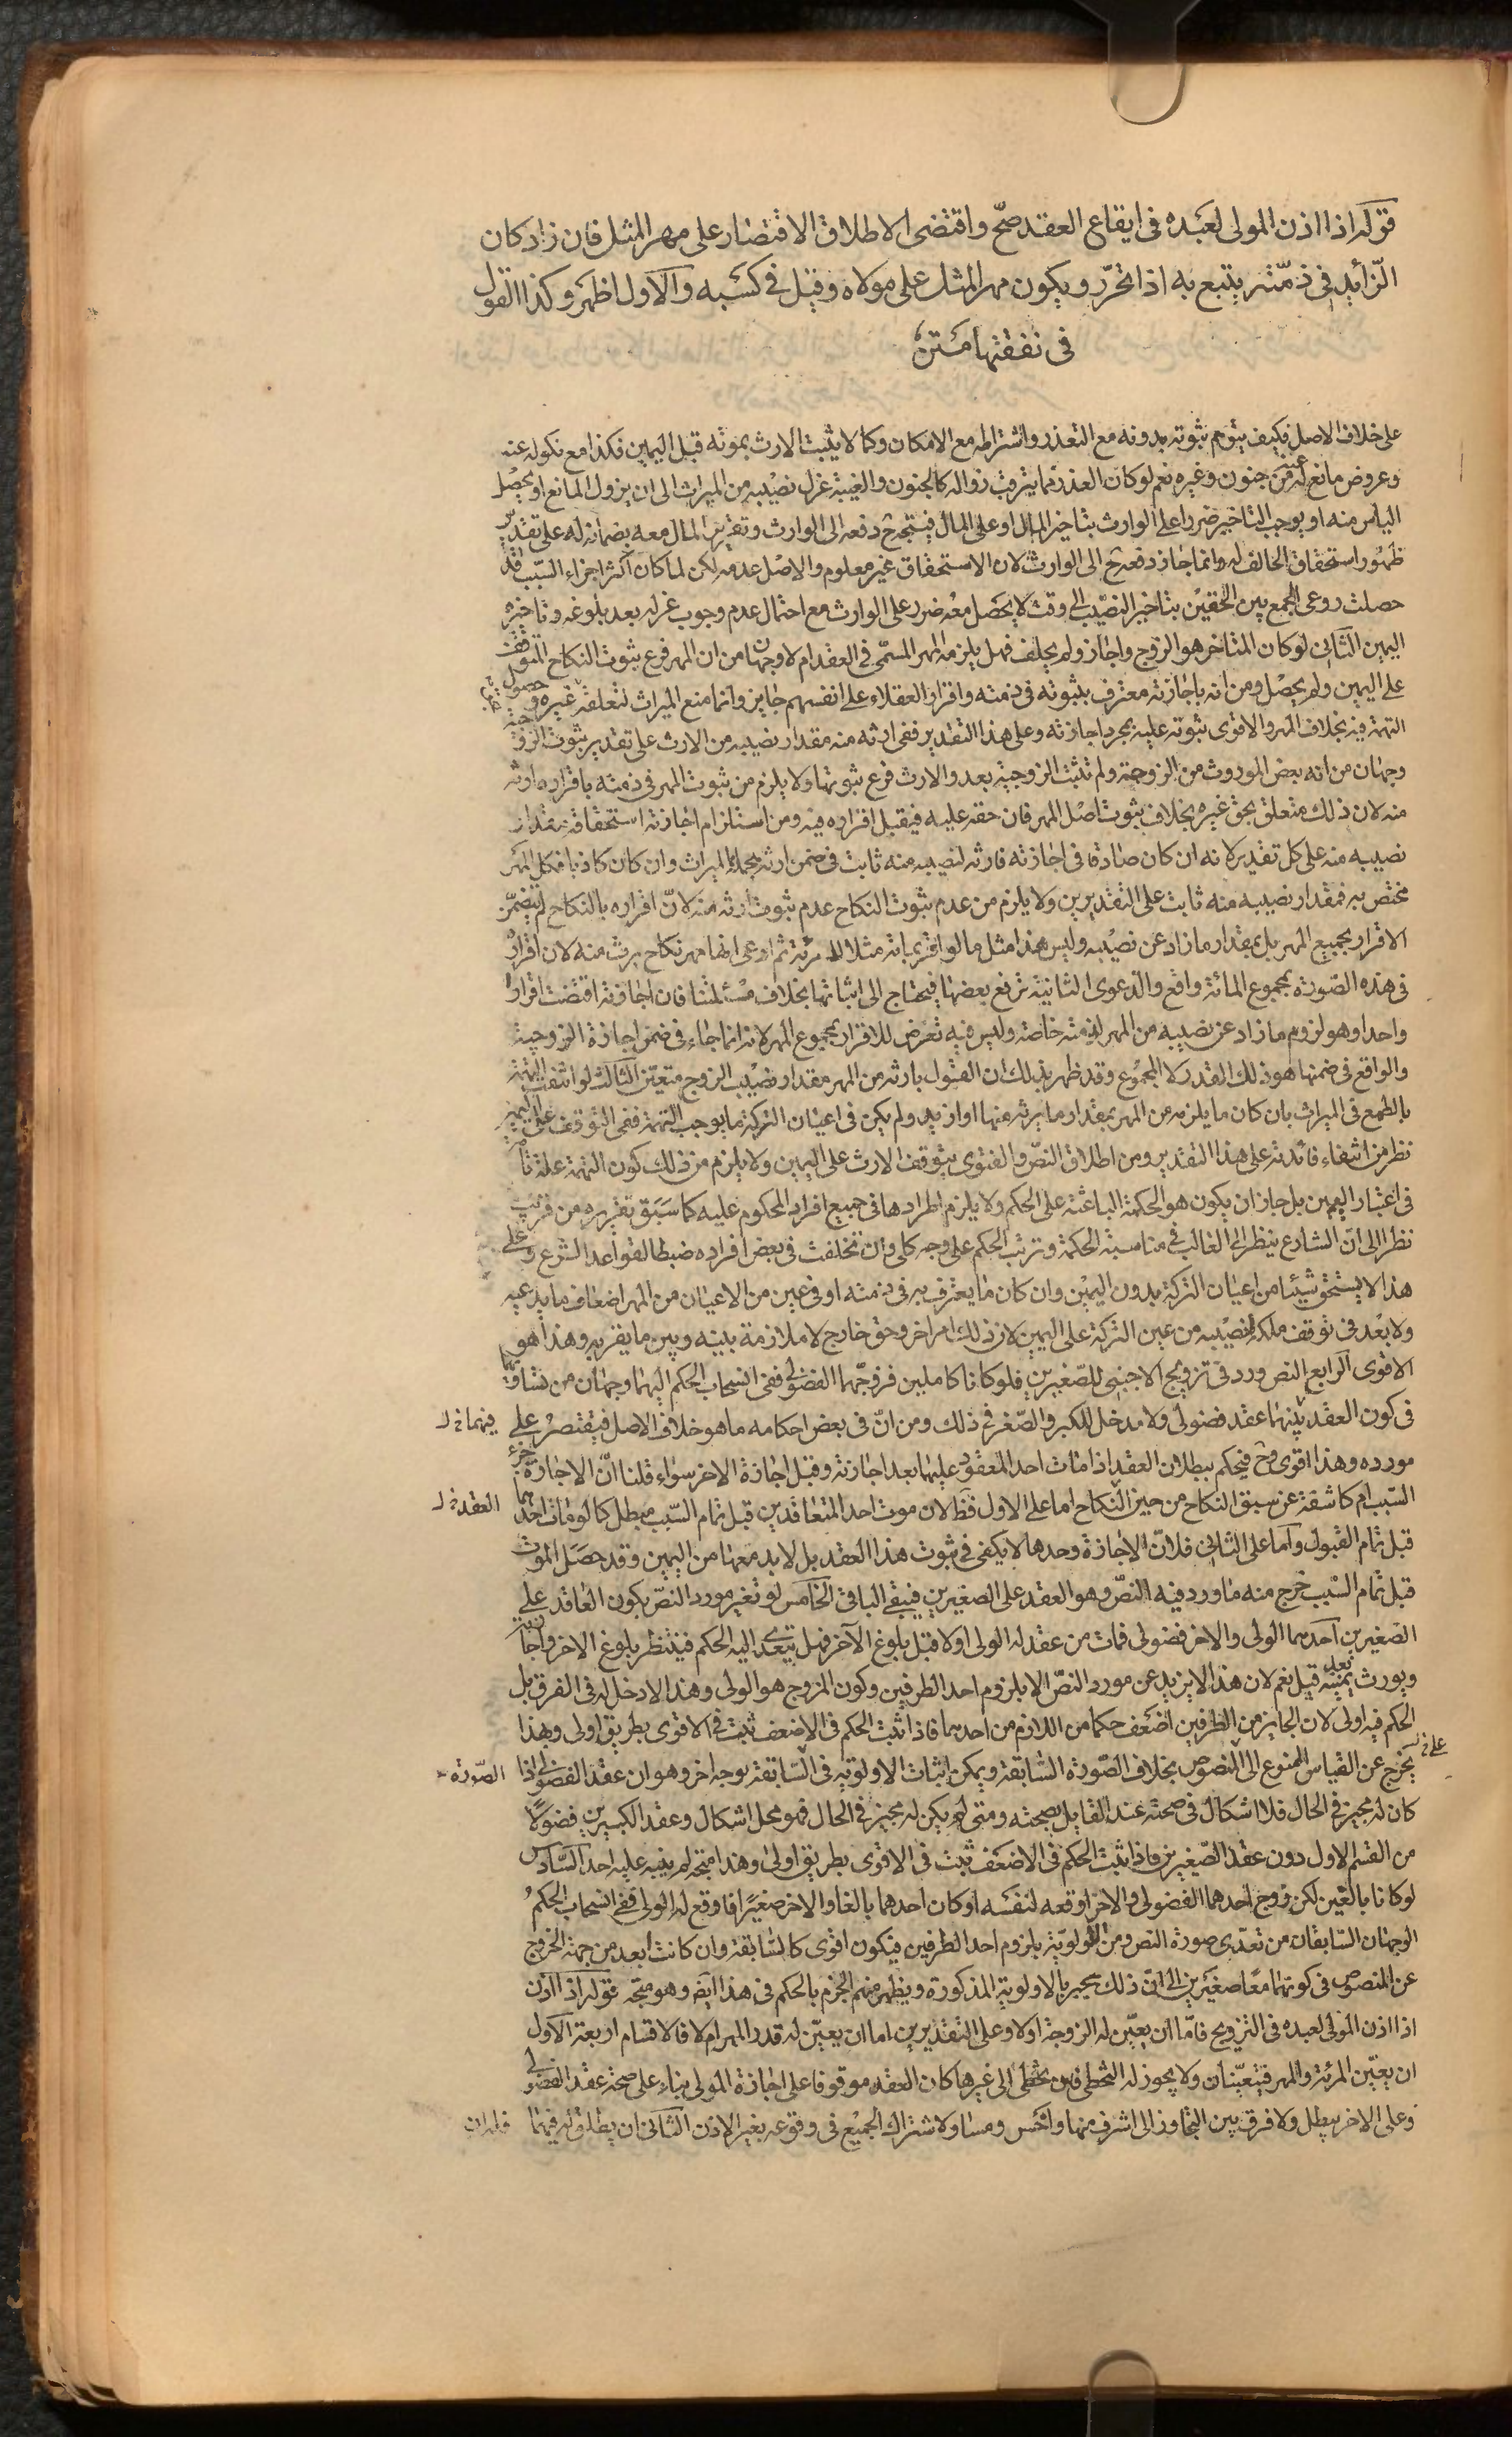 قوله اذا اذن المولى لعبده فى ايقاع العقد صحّ واقتضى الاطلاق الاقتصار على مهر المثل فان زاد كان
الزّائد فى ذمّته يتبع به اذا تحرّر ويكون مهر المثل على مولاه وقيل فى كسبه والاول اظهر وكذا القول
فى نفقتها متن
على خلاف الاصل فكيف يتوهم ثبوته بدونه مع التعذر واشتراطه مع الامكان وكما لا يثبت الارث بموته قبل اليمين فكذا مع نكوله عنه
وعروض مانع له عنه من جنون وغيره نعم لو كان العذر مما يترقب زواله كالجنون والغيبة عزل نصيبه من الميراث الى ان يزول المانع او يحصل
الياس منه او يوجب التاخير ضررا على الوارث بتاخير المال او على المال فيتجه ح دفعه الى الوارث وتغريم المال معه بضمانه له على تقدير
ظهور استحقاق الحالف له وانما جاز دفعه ح الى الوارث لان الاستحقاق غير معلوم والاصل عدمه لكن لما كان اكثر اجزاء السّبب قد
حصلت روعى الجمع بين الحقين بتاخير النصيب الى وقت لا يحصل معه ضرر على الوارث مع احتمال عدم وجوب عزله بعد بلوغه وتاخيره
اليمين الثانى لو كان المتاخر هو الزوج واجاز ولم يحلف فهل يلزمه المهر المسمّى فى العقد ام لا وجهان من ان المهر فرع ثبوت النكاح المتوقف
على اليمين ولم يحصل ومن انه باجازته معترف بثبوته فى ذمته واقرار العقلاء على انفسهم جايز وانما منع الميراث لتعلقه بغيره وحصول
التهمة فيه بخلاف المهر والاقوى ثبوته عليه بمجرد اجازته وعلى هذا التقدير ففى ارثه منه مقدار نصيبه من الارث على تقدير ثبوت الزوجية
وجهان من انه بعض الموروث من الزوجة ولم تثبت الزوجية بعد والارث فرع ثبوتها ولا يلزم من ثبوت المهر فى ذمته باقراره ارثه
منه لان ذلك متعلق بحق غيره بخلاف ثبوت اصل المهر فان حقه عليه فيقبل اقراره فيه ومن استلزام اجازته استحقاقه بمقدار
نصيبه منه على كل تقدير لانه ان كان صادقا فى اجازته فارثه لنصيبه منه ثابت فى ضمن ارثه بجملة الميراث وان كان كاذبا فكل المهر
مختص به فمقدار نصيبه منه ثابت على التقديرين ولا يلزم من عدم ثبوت النكاح عدم ثبوت ارثه منه لانّ اقراره بالنكاح لم يتضمّن
الاقرار بجميع المهر بل بمقدار ما زاد عن نصيبه وليس هذا مثل ما لو اقر بمائة مثلا لامرئة ثم ادعى انها مهر نكاح يرث منه لان اقراره
فى هذه الصّورة بمجموع المائة واقع والدعوى الثانية ترفع بعضها فيحتاج الى اثباتها بخلاف مسئلتنا فان اجازته اقتضت اقرارا
واحدا وهو لزوم ما زاد عن نصيبه من المهر لذمته خاصة وليس فيه تعرض للاقرار بمجموع المهر لانه انما جاء فى ضمن اجازة الزوجية
والواقع فى ضمنها هو ذلك القدر لا المجموع وقد ظهر بذلك ان القبول بارثه من المهر مقدار نصيب الزوج متعيّن الثالث لو انتفت التهمة
بالطمع فى الميراث بان كان ما يلزمه من المهر بمقدار ما يرثه منها او ازيد ولم يكن فى اعيان التركة ما يوجب التهمة ففى التوقف على اليمين
نظر من انتفاء فائدته على هذا التقدير ومن اطلاق النصّ والفتوى بتوقف الارث على اليمين ولا يلزم من ذلك كون التهمة علة تامة
فى اعتبار اليمين بل جاز ان يكون هو الحكمة الباعثة على الحكم ولا يلزم اطرادها فى جميع افراد المحكوم عليه كما سبق تقريره من قريب
نظرا الى انّ الشارع ينظر الى الغالب فى مناسبة الحكمة وترتب الحكم على وجه كلى وان تخلفت فى بعض افراده ضبطا لقواعد الشرع وعلى
هذا لا يستحق شيئا من اعيان التركة بدون اليمين وان كان ما يعترف به فى ذمته او فى عين من الاعيان من المهر اضعاف ما يدعيه
ولا بعد فى توقف ملكه لنصيبه من عين التركة على اليمين لان ذلك امر اخر وحق خارج لا ملازمة بينه وبين ما يقر به وهذا هو
الاقوى الرابع النص ورد فى تزويج الاجنبى للصّغيرين فلو كانا كاملين فزوّجهما الفضولى ففى انسحاب الحكم اليهما وجهان من تساويهما
فى كون العقد بينهما عقد فضولى ولا مدخل للكبر والصّغر فى ذلك ومن انّ فى بعض احكامه ما هو خلاف الاصل فيقتصر على فيهما خ ل
مورده وهذا اقوى وح فيحكم ببطلان العقد اذا مات احد المعقود عليهما بعد اجازته وقبل اجازة الاخر سواء قلنا انّ الاجازة جزء
السّبب ام كاشفة عن سبق النكاح من حين النّكاح اما على الاول فظ لان موت احد المتعاقدين قبل تمام السّبب مبطل كما لو مات احدهما العقد خ ل
قبل تمام القبول وامّا على الثانى فلانّ الاجازة وحدها لا يكفى فى ثبوت هذا العقد بل لا بد معها من اليمين وقد حصل الموت
قبل تمام السّبب خرج منه ما ورد فيه النصّ وهو العقد على الصغيرين فيبقى الباقى الخامس لو تغير مورد النصّ بكون العاقد على
الصغيرين احدهما الولى والاخر فضولى فمات من عقد له الولى اولا قبل بلوغ الآخر فهل يتعدّى اليه الحكم فينتظر بلوغ الاخر واجازته
ويورث بعد يمينه قيل نعم لان هذا لا يزيد عن مورد النصّ الا بلزوم احد الطرفين وكون المزوج هو الولى وهذا لا دخل له فى الفرق بل
الحكم فيه اولى لان الجايز من الطرفين اضعف حكما من اللازم من احدهما فاذا ثبت الحكم فى الاضعف ثبت فى الاقوى بطريق اولى وبهذا
على خ يخرج عن القياس الممنوع الى المنصوص بخلاف الصّورة السّابقة ويمكن اثبات الاولوية فى السّابقة بوجه اخر وهو ان عقد الفضولى اذا الصّورة
كان له مجيز فى الحال فلا اشكال فى صحته عند القايل بصحته ومتى لم يكن له مجيز فى الحال فهو محل اشكال وعقد الكبيرين فضولا
من القسم الاول دون عقد الصّغيرين فاذا ثبت الحكم فى الاضعف ثبت فى الاقوى بطريق اولى وهذا متجه لم ينبه عليه احد السّادس
لو كانا بالغين لكن زوج احدهما الفضولى والاخر اوقعه لنفسه او كان احدهما بالغا والاخر صغيرا فاوقع له الولى ففى انسحاب الحكم
الوجهان السّابقان من تعدّى صورة النص ومن الاولويّة بلزوم احد الطرفين فيكون اقوى كالسّابقة وان كانت ابعد من جهة الخروج
عن المنصوص فى كونهما معًا صغيرين الى انّ ذلك يجبر بالاولوية المذكورة ويظهر منهم الجزم بالحكم فى هذا ايضا وهو متّجه قوله اذا اذن
اذا اذن المولى لعبده فى التزويج فامّا ان يعيّن له الزوجة او لا وعلى التقديرين اما ان يعيّن له قدر المهر ام لا فالاقسام اربعة الاول
ان يعيّن المرئة والمهر فيتعيّنان ولا يجوز له التخطى فان تخطى الى غيرها كان العقد موقوفا على اجازة المولى بناء على صحة عقد الفضولى
وعلى الاخر يبطل ولا فرق بين التجاوز الى اشرف منها واخس ومساو لاشتراك الجميع فى وقوعه بغير الاذن الثانى ان يطلق له فيهما فله ان